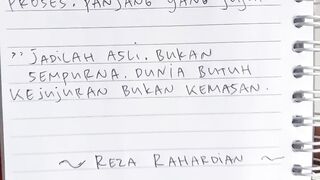 PROSES. PANJANG YANG JUJUR
" JADILAH ASLI. BUKAN
SEMPURNA. DUNIA BUTUH
KEJUJURAN BUKAN KEMASAN.
~ REZA RAHARDIAN ~